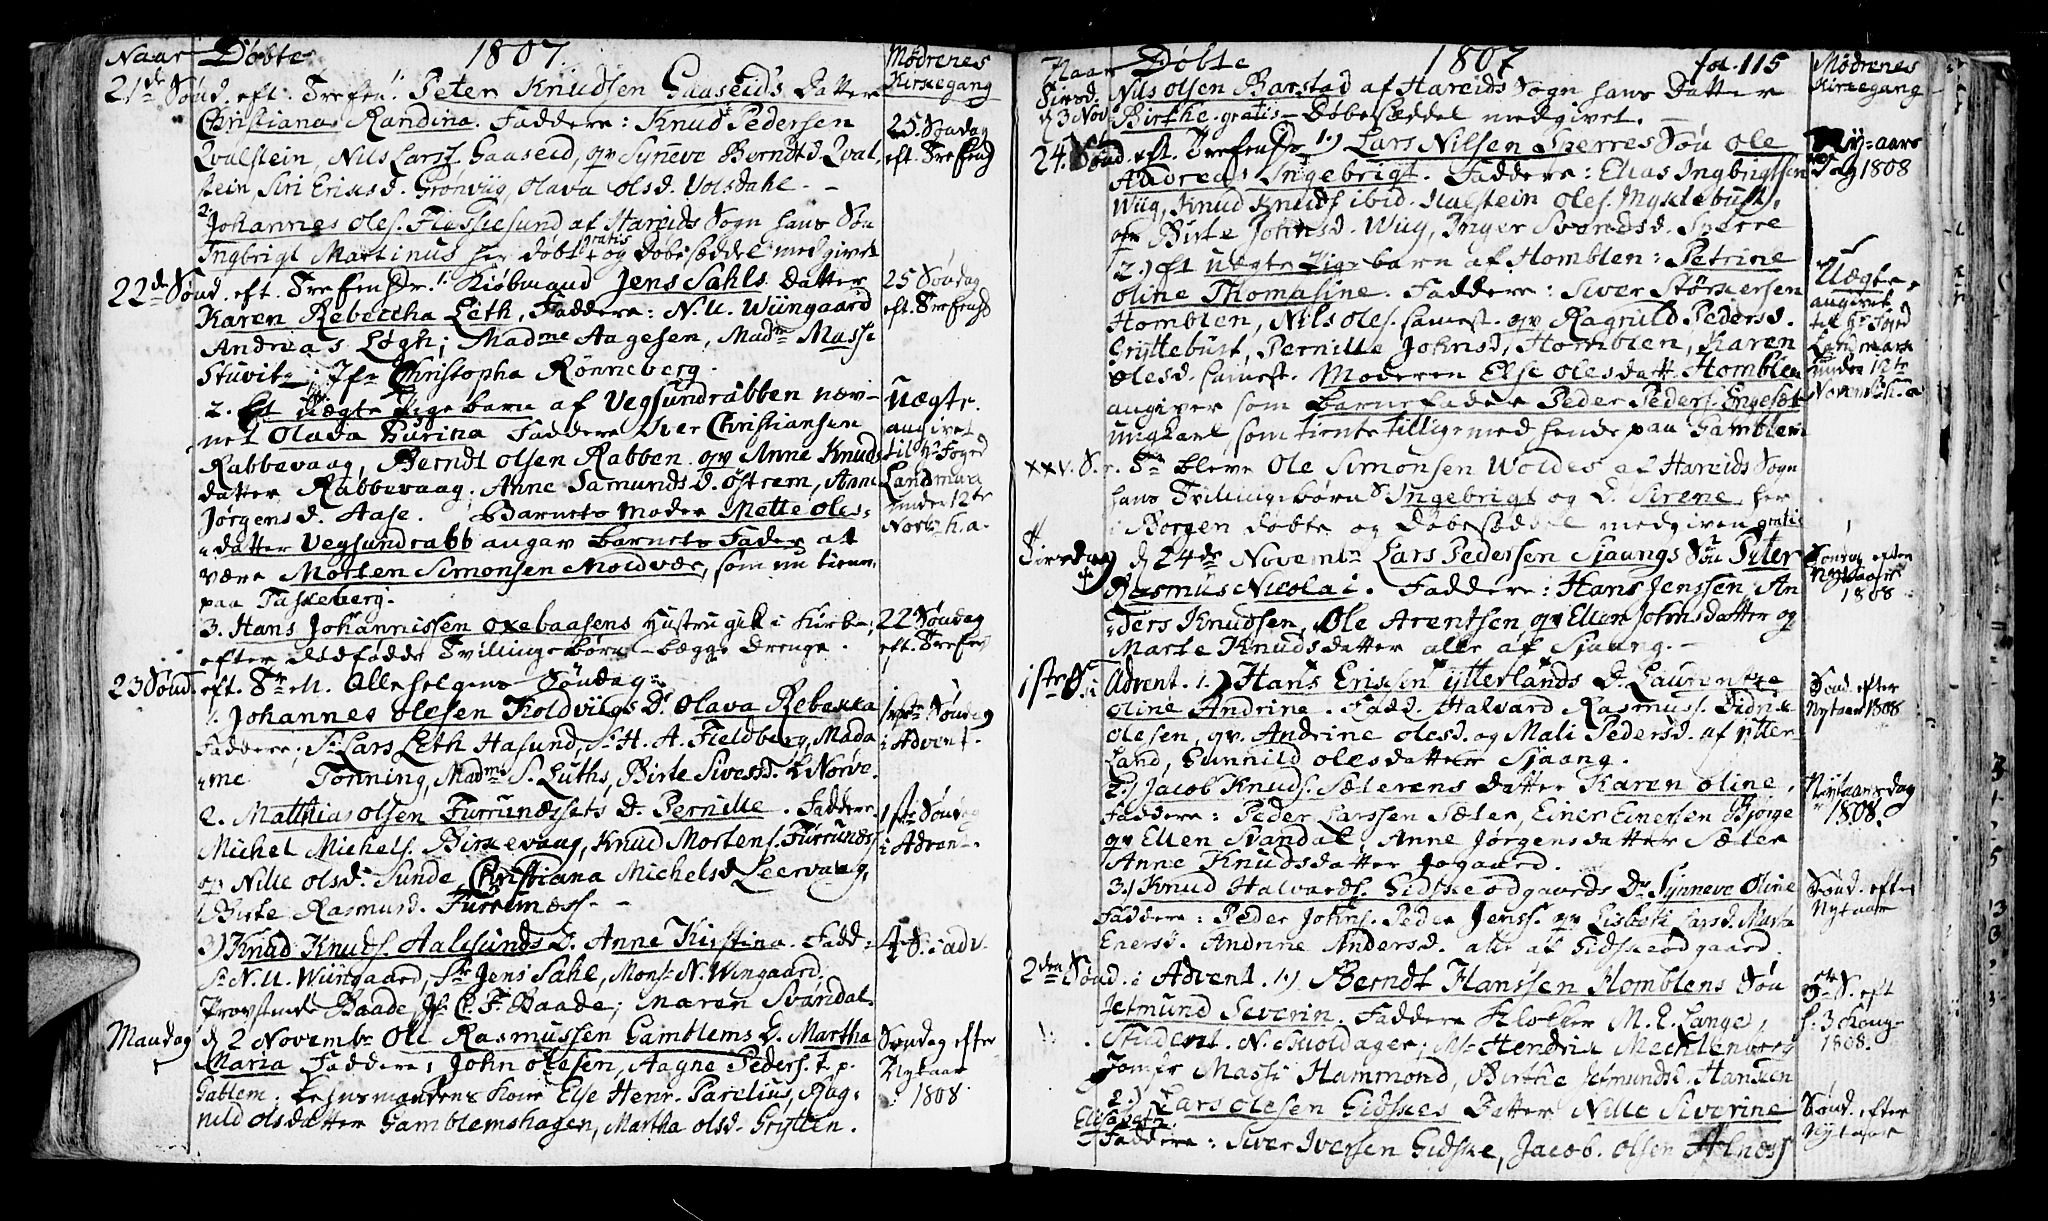 Naar Døbte 1807. Mødrenes Kirkegang
21de Sønd. eft. Trefen. 1. Peter Knudsen Gaaseids Datter
Christiana Randina. Faddere: Knud Pedersen
Qvalstein, Nils Larss. Gaaseid, qv Synneve Berndtsd. Qval
stein, Siri Ericksd. Grönviig, Olava Olsd. Volsdahl. –
25. Søndag
eft. Trefend
2. Johannes Oles. Flaskiesund af Hareids Sogn hans Søn
Ingbrigt Martinus her døbt gratis og Døbeseddel medgivet
22de Sønd. eft. Trefensdr. 1. Kiøbmand Jens Sahls Datter
Karen Rebeccha Leth, Faddere: N. U. Wiingaard
Andreas Løgh; Madme Aagesen, Madm Massi
Stuvitz, Jfr Christopha Rönneberg.
25 Søndag
eft. Trefensd
2. Et uægte Pige barn af Vegsundrabben næv-
net Olava Gurina Faddere Iver Christiansen
Rabbevaag, Berndt Olsen Rabben qv Anne Knuds
datter Rabbevaag, Anne Samundsd. Östrem, Anne
Jørgensd. Aase. Barnets Moder Mette Oles-
datter Vegsundrabb angav Barnets Fader at
være Morten Simonsen Moldvær, som nu tiener
paa
Uægte.
angivet
til Hr Foged
Landmark
under 12te
Novbr h. a.
3. Hans Johannissen Oxebaasens Hustru gik i Kirke
efter dødfødde Tvillingebørn – begge Drenge.
22 Søndag
eft. Trefns
23 Sønd. eft. Tr. M. Allehelgens Søndag
1. Johannes Olesen Koldviigs D. Olava Rebekka
Faddere; Sr Lars Leth Hasund, Sr H. A. Fieldberg, Mada
me Tønning, Madm S. Luths, Birte Siversd. Nørve.
1ste Søndag
i Advent.
2. Matthias Olsen Furrunæssets D. Pernille. Faddere
Michel Michels. Birkevaag, Knud Mortens. Furrunæss
og Nille Olsd. Sunde Christiana Michelsd Leervaag,
Birte Rasmusd. Furrunæss. –
1ste Søndag
i Advent.
3) Knud Knuds. Aalesunds D. Anne Kirstina. Fadd:
Sr N. U. Wiingaard, Sr Jens Sahl, Mons. N. Wingaard,
Provstinde Baade, Jf. C. F. Baade; Maren Svandal.
4de S. i adv.
Mandag d 2 Novembr Ole Rasmussen Gamblems D. Martha
Maria Faddere: John Olesen, Aagne Peders. t. p.
Gablem. Lehnsmandens Kone Else Henr. Parelius, Rag-
nild Olsdatter Gamblemshagen, Martha Olsd. Grytten.
Søndag efter
Nytaar
1808.
Naar Døbte 1807 fol. 115 Mødrenes Kirkegang
Tirsd.
d 3 Nov
Nils Olsen Barstad af Hareids Sogn hans Datter
Birthe gratis – Døbeseddel medgivet. –
24. Sønd. eft. Trefensdr 1) Lars Nilsen Sperres Søn Ole
Andreas Ingebrigt. Faddere: Elias Ingbrigtsen
Wiig, Knud Knuds ibid. Halstein Oles. Myklebust,
qv Birte Johnsd. Wiig, Inger Sivertsd. Sperre
Ny-aars
dag 1808
2.) Et uægte Pige barn af Homblen: Petrine
Oline Thomasine. Faddere: Siver Størkersen
Homblen, Nils Oles. samest. qv Ragnild Pedersd.
Gryttebust, Pernille Johnsd, Homblen, Karen
Olesd. samest. Moderen Else Olesdatt. Homblen
angiver som Barnefader Peder Peders. Engeset
ungkarl som tiente tillige med hende paa Gamblem
Uægte,
angivet
til Hr Fogd
Landmark
under 12te
Novembr h. a
XXV. S. e. Tr. bleve Ole Simonsen Woldes af Hareids Sogn
hans Tvillingebørn S. Ingebrigt og D. Sirene her
i Borgen døbte og Døbeseddel medgiven gratis
Tirsdag d 24de Novembr Lars Pedersen Sjaungs Søn Peter
Rasmus Nicolai. Faddere: Hans Jenssen, An
ders Knudsen, Ole Arentsen qv Ellen Johnsdatter og
Marte Knudsdatter alle af Sjaung. –
Søndag efter
Nytaar
1808
1ste S. i Advent. 1.) Hans Ericsen Ytterlands D. Laurentze
Oline Andrine. Fadd. Halvard Rasmuss. Didrik
Olesen, qv. Andrine Olesd. og Mali Pedersd. af Ytter
land, Gunnild Olesdatter Sjaang.
Sønd. efter
Nytaar 1808
2.) Jacob Knuds. Sæterens Datter Karen Oline,
Faddere: Peder Larssen Sæter, Einer Einersen Bjørge
qv Ellen Svandal, Anne Jørgensdatter Sæter
Anne Knudsdatter Jogaard.
Nytaarsdag
1808.
3.) Knud Halvards. Gidskeodgaards D. Synneve Oline
Faddere: Peder Johns. Peder Jenss. qv Lisbeth Larsd. Marte
Enersd. Andrine Andersd. alle af Gidskeodgaard.
Sønd. efter
Nytaar
2den Sønd. i Advent. 1.) Berndt Hanssen Homblens Søn
Jetmund Severin. Faddere Klokker M. E. Lange,
Student. N. Skoldager; Mr Hendrik Mechlenborg
Jomfr Massi Hammond, Birthe Jetmundsd. Hansken
S. eft
h. 3 Kong-
1808.
2.) Lars Olesen Gidskes Datter Nille Severine
Elisabeth.
Faddere: Siver Iversen Gidske, Jacob. Olsen Alnæs
Sønd. efter
Nytaar